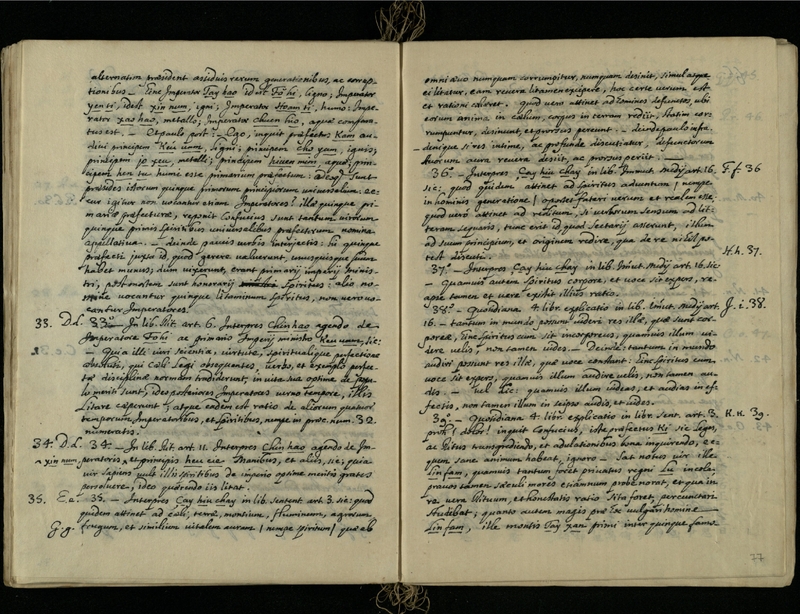 alternatim præsident assiduis rerum generationibus, ac corrup-
tionibus — sine Imperator Tay hao id est Fo hi, ligno; Imperator
yen ti, idest xin num, igni; Imperator hoam ti, humo: Impe-
rator xao hao, metallo; Imperator Chuen hio, aquæ compara-
tus est. — Et paulo post: — Ego, inquit præfectus Kam au-
divi principem Keu vam, ligni; principem cho yum, ignis,
principem jo xeu, metalli; principem hiuen mim, aquæ; prin-
cipem heu tu humi esse primarium præfectum:
præsides istorum quinque primorum principiorum universalium.
igitur non vocantur etiam Imperatores? illæ quinque pri-
mariæ præfecturæ, reponit Confucius sunt tantum virorum
quinque primis spiritibus universalibus præfectorum nomina
appellativa. — deinde paucis verbis interjectis: hi quinque
præfecti juxta id, quod gerere valuerunt, unusquisque suum
habet munus; dum vixerunt, erant primarij imperij Minis-
tri, post mortem sunt honorarij spiritus: alio no-
mine vocantur quinque litaminum spiritus, non vero vo-
cantur Imperatores.
33. D.d. 33. — In lib. Rit. art. 6. Interpres Chin hao agendo de
Imperatore Fo hi ac primario Imperij ministro Keu vam, sic:
— Quia illi viri scientia, virtute, spiritualique perfectione
absoluti, qui Cœli Legi obsequentes, verbo, et exemplo perfec-
tæ disciplinæ normam tradiderunt, in vita sua optime de
lo meriti sunt, ideo posteriores Imperatores verno tempore, illis
Litare cæperunt; atque eadem est ratio de aliorum quatuor
temporum Imperatoribus, et Spiritibus, nempe in proc. num. 32.
numeratis.
34. D.d. 34. — In lib. Rit. art. 11. Interpres Chin hao agendo de Im-
xin num, peratoris, et principis heu cie Manibus, et alijs, sic; quia
vir sapiens vult illis spiritibus de imperio optime meritis grates
persolvere, ideo quærendo iis litat.
35. E.e. 35. — Interpres Çay hiu chay in lib. sentent. art. 3. sic: quod
quidem attinet ad cœli, terræ, montium, fluminum, agrorum
G.g. frugum, et similium vitalem auram (nempe spiritum) quæ ab
omni ævo numquam corrumpitur, numquam desinit, simul atque
ei litatur, eam revera litamen excipere, hoc certe verum est
et rationi cohæret. quod vero attinet ad homines defunctos, ubi
eorum anima in cælum, corpus in terram rediit, statim cor-
rumpuntur, desinunt, et prorsus pereunt: — deinde paulo infra.
denique si res intime, ac profunde discutiatur, defunctorum
horum aura revera desiit, ac prorsus periit —
36. — Interpres Çay hiu chay in lib. Immut. Medij art. 16. F.f. 36
sic: quod quidem attinet ad spiritus adventum (nempe
in hominis generatione) oportet fateri verum et realem esse:
quod vero attinet ad reditum, si verborum sensum ad lit-
teram sequaris, tunc erit id, quod Sectarij asserunt, illum
ad suum principium, et originem redire, qua de re nihil po-
test discuti. H.h. 37.
37. — Interpres Çay hiu chay in lib. Immut. Medij art. 16. sic
— Quamvis autem Spiritus corpore, et voce sit expers, re-
apse tamen et vere existit illius ratio.
38. — Quotidiana 4. libr. explicatio in lib. Immut. Medij art. J. i. 38.
16. — tantum in mundo possunt videri res illæ, quæ sunt cor-
poreæ, sine Spiritus cum sit incorporeus, quamvis illum vi-
dere velis, non tamen vides. — Deinde: tantum in mundo
audiri possunt res illæ, quæ voce constant: sine Spiritus cum
voce sit expers, quamvis illum audire velis, non tamen au-
dis — vel sic: quamvis illum videas, et audias in ef-
fectis, non tamen illum in seipso audis, et vides.
39. — Quotidiana 4. libr. explicatio in libr. Sent. art. 3. K.k. 39.
proh! dolor! inquit Confucius, iste præfectus Ki sic Leges,
ac Ritus transgrediendo, et adolationibus bona inquirendo, æ-
quum sane animum habeat, ignoro — Sat notus vir ille
Lin fam, quamvis tantum foret privatus regni Lu incola,
pravos tamen sæculi mores etiamnum probe norat, et qua in
re vera Rituum, et honestatis ratio sita foret, percunctari
studebat; quanto autem magis præ vulgari homine
Lin fam, ille montis Tay xan primi inter quinque famo-
77